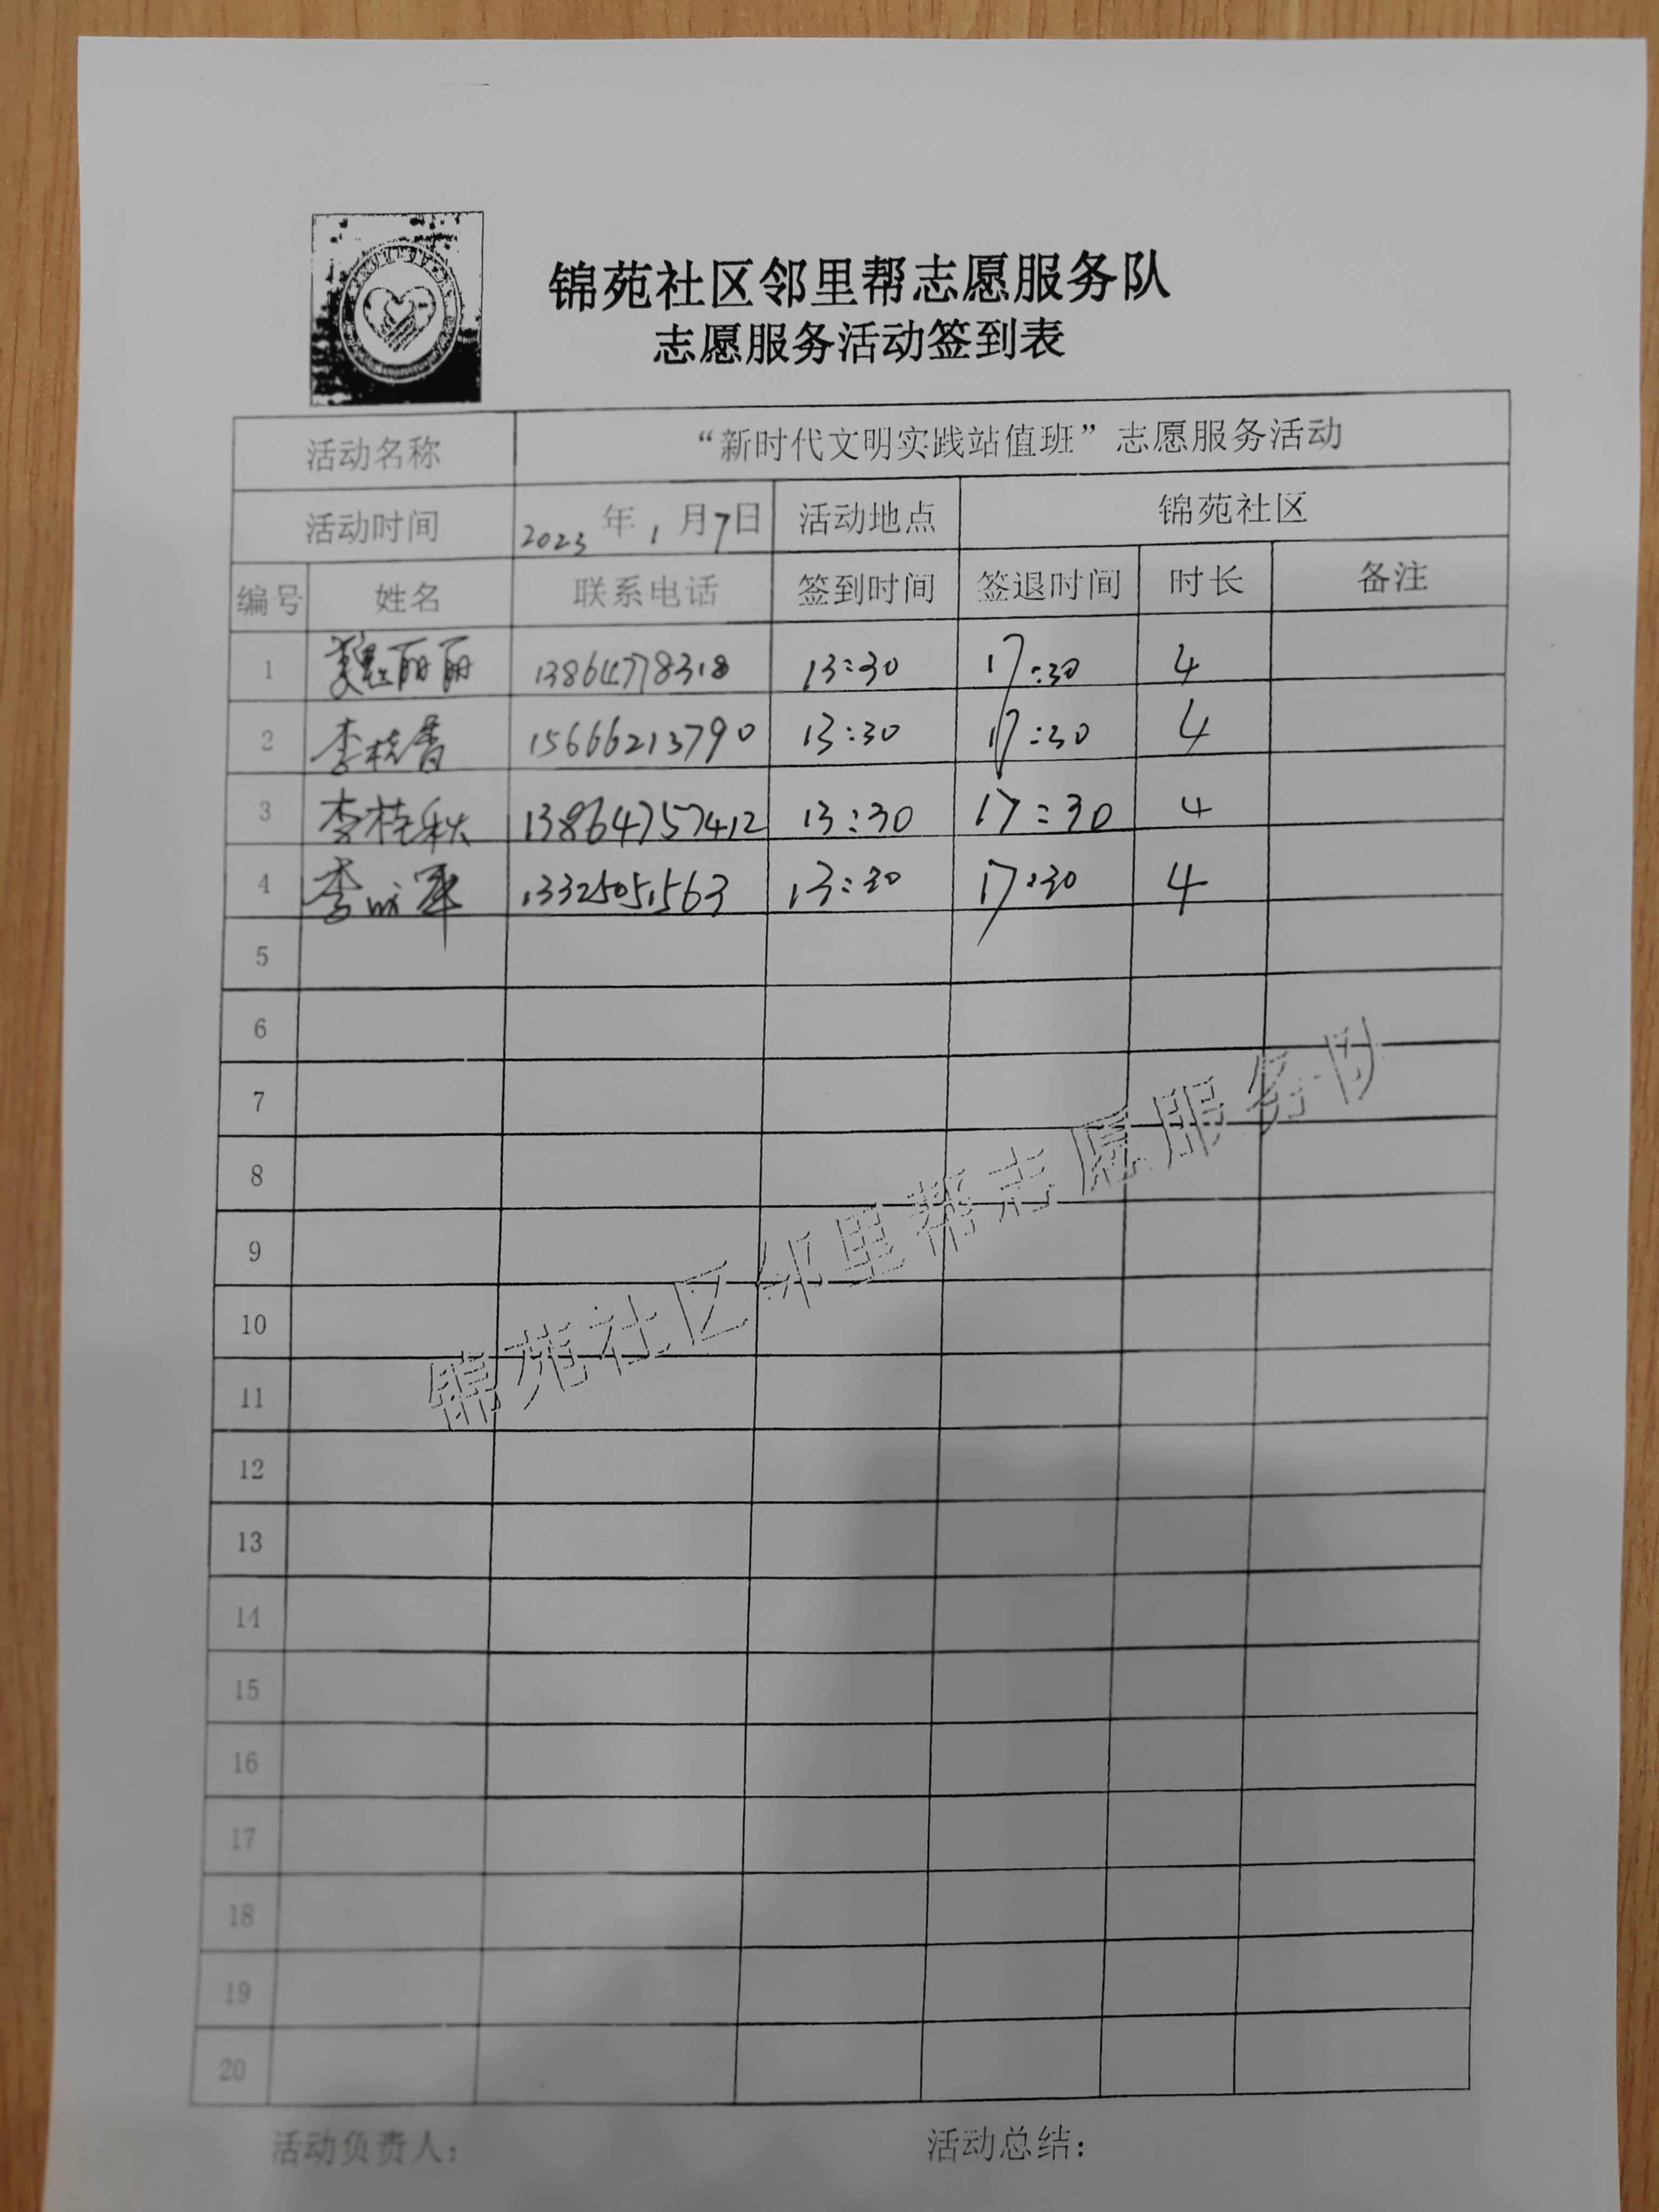 锦苑社区邻里帮志愿服务队
志愿服务活动签到表
活动名称 “新时代文明实践站值班”志愿服务活动
活动时间 2023年1月7日 活动地点 锦苑社区
编号 姓名 联系电话 签到时间 签退时间 时长 备注
1 魏丽丽 13864778318 13:30 17:30 4
2 李桂香 15666213790 13:30 17:30 4
3 李桂秋 13864757412 13:30 17:30 4
4 李 13325051563 13:30 17:30 4
5
6
7
8
9
10
11
12
13
14
15
16
17
18
19
20
锦苑社区邻里帮志愿服务队
活动负责人: 活动总结: